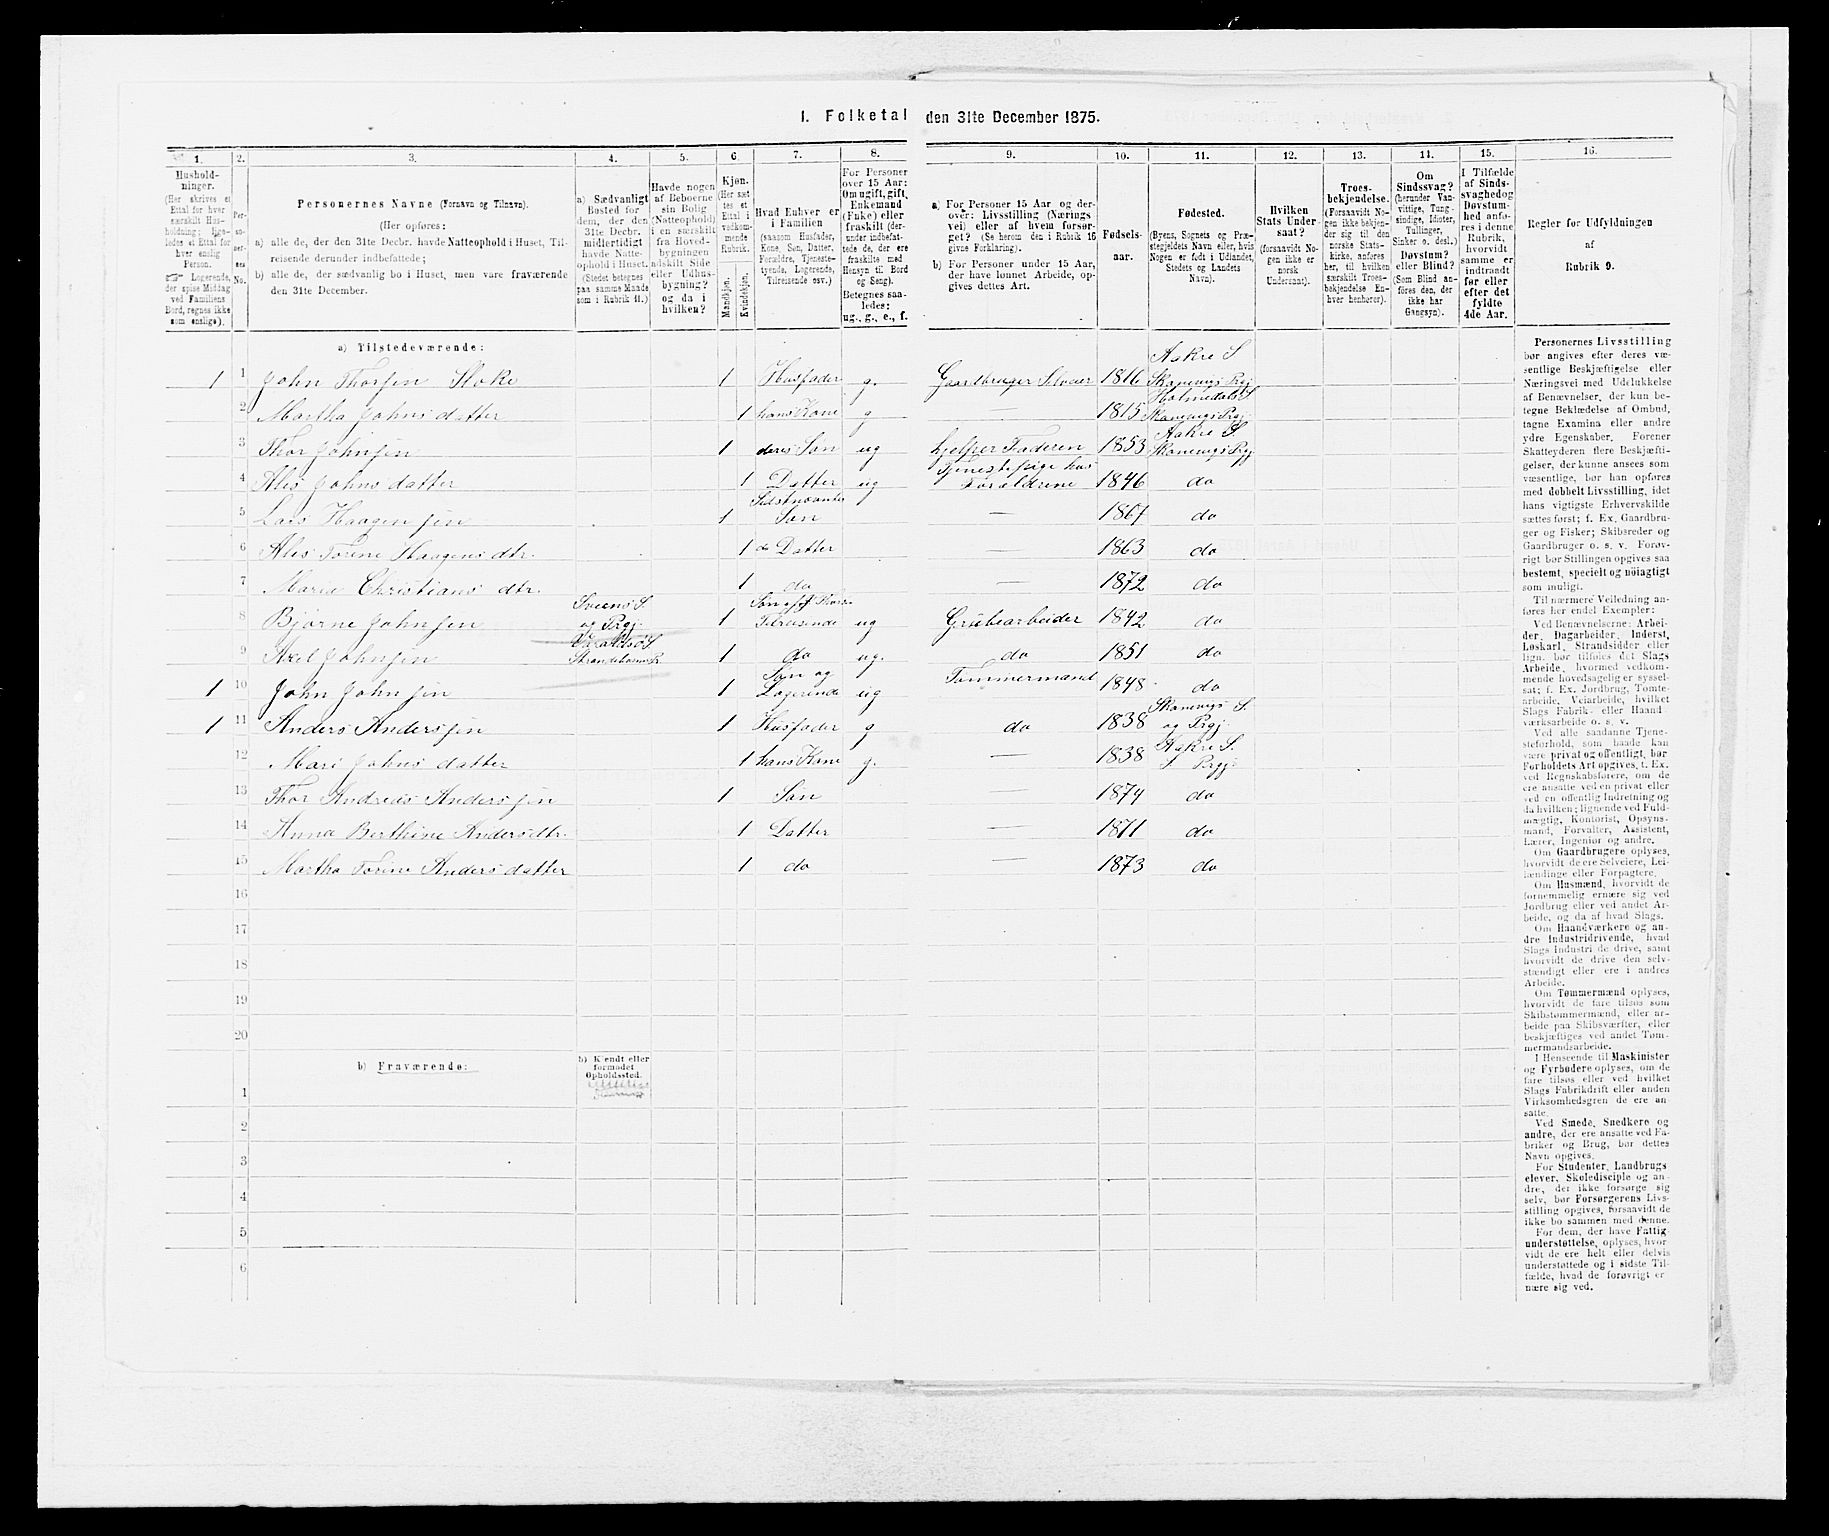 1. Folketal den 31te December 1875.
1. 2. 3. 4. 5. 6. 7. 8. 9. 10. 11. 12. 13. 14. 15. 16.
Hushold-
ninger.
(Her skrives et
Ettal for hver
særskilt Hus-
holdning; lige-
ledes et Ettal for
hver enslig
Person.
Logerende,
der spise Middag
ved Familiens
Bord, regnes ikke
som enslige).
Per-
so-
ner-
nes
No.
Personernes Navne (Fornavn og Tilnavn).
(Her opføres:
a) alle de, der den 31te Decbr. havde Natteophold i Huset, Til-
reisende derunder indbefattede;
b) alle de, der sædvanlig bo i Huset, men vare fraværende
den 31te December.
a) Sædvanligt
Bosted for
dem, der den
31te Decbr.
midlertidigt
havde Natte-
ophold i Huset.
(Stedet betegnes
paa samme Maade
som i Rubrik 11.)
Havde nogen
af Beboerne
sin Bolig
(Natteophold)
i en særskilt
fra Hoved-
bygningen
adskilt Side
eller Udhus-
bygning?
og da i
hvilken?
Kjøn.
(Her sæt-
tes et
Ettal i
vedkom-
mende
Rubrik.
Mandkjøn.
Kvindekjøn.
Hvad Enhver er
i Familien
(saasom Husfader,
Kone, Søn, Datter,
Forældre, Tjeneste-
tyende, Logerende,
Tilreisende osv.)
For Personer
over 15 Aar:
Om ugift, gift,
Enkemand
(Enke) eller
fraskilt (der-
under indbefat-
tede de, der ere
fraskilte med
Hensyn til Bord
og Seng).
Betegnes saa-
ledes:
ug., g., e., f.
a) For Personer 15 Aar og der-
over: Livsstilling (Nærings-
vei) eller af hvem forsør-
get? (Se herom den i Rubrik 16
givne Forklaring).
b) For Personer under 15 Aar,
der have lønnet Arbeide, op-
gives dettes Art.
Fødsels-
aar.
Fødested.
(Byens, Sognets og Præ-
stegjeldets Navn eller, hvis
Nogen er født i Udlandet,
Stedets og Landets
Navn).
Hvilken
Stats Under-
saat?
(forsaavidt No-
gen ikke er
norsk
Undersaat).
Troes-
bekjendelse.
(Forsaavidt No-
gen ikke bekjen-
der sig til den
norske Stats-
kirke, anføres
her, til hvilken
særskilt Troes-
bekjendelse En-
hver henhører).
Om
Sindssvag?
(herunder Van-
vittige, Tung-
sindige, Idioter,
Sinker o. desl.)
Døvstum?
eller Blind?
(Som Blind an-
føres den, der
ikke har
Gangsyn).
I Tilfælde
af Sinds-
svaghed og
Døvstum-
hed anfø-
res i denne
Rubrik,
hvorvidt
samme er
indtraadt
før eller
efter det
fyldte
4de Aar.
Regler for Udfyldningen
af
Rubrik 9.
a) Tilstedeværende:
1 1 John Thorsen Stoke 1 Husfader g. Gaardbruger Selveier 1816 Aakre S Skanevigs Prgj
2 Martha Johnsdatter 1 hans Kone g — 1815 Holmedals S Skanevigs Prgj
3 Thor Johnsen 1 deres Søn ug hjelper Faderen 1853 Aakre S Skanevigs Prgj
4 Alis Johnsdatter 1 Datter ug Tjenestepige hos Forældrene 1846 do
5 Lars Haagensen 1 Sidstnævntes Søn 1867 do
6 Alis Torine Haagens dtr. 1 do Datter — 1863 do
7 Marie Christians dtr. 1 do — 1872 do
8 Bjørne Johnsen Sveens S. og Prgj. 1 Søn Tilreisende ug Grubearbeider 1842 do
9 Axel Johnsen Varaldsø S Strandebarm Pr. 1 do ug. do 1851 do
1 10 John Johnsen 1 Søn og Logerende ug Tømmermand 1848 do
1 11 Anders Andersen 1 Husfader g do 1838 Skanevigs S. og Prgj
12 Mari Johnsdatter 1 hans Kone g. — 1838 Aakre S. S. Prgj
13 Thor Andreas Andersen 1 Søn — 1874 do
14 Anna Berthine Andersdtr. 1 Datter — 1871 do
15 Martha Torine Andersdatter 1 do — 1873 do
16
17
18
19
20
b) Fraværende:
b) Kjendt eller
formodet
Opholdssted.
1
2
3
4
5
6
Personernes Livsstilling
bør angives efter deres væ-
sentlige Beskjæftigelse eller
Næringsvei med Udelukkelse
af Benævnelser, der kun be-
tegne Beklædelse af Ombud,
tagne Examina eller andre
ydre Egenskaber. Forener
Skatteyderen flere Beskjæfti-
gelser, der kunne ansees som
væsentlige, bør han opføres
med dobbelt Livsstilling, idet
hans vigtigste Erhvervskilde
sættes først; f. Ex. Gaardbru-
ger og Fisker; Skibsreder og
Gaardbruger o. s. v. Forøv-
rigt bør Stillingen opgives saa
bestemt, specielt og nöiagtigt
som muligt.
Til nærmere Veiledning an-
føres her endel Exempler:
Ved Benævnelserne: Arbei-
der, Dagarbeider, Inderst,
Løskarl, Strandsidder eller
lign. bør tilføies det Slags
Arbeide, hvormed vedkom-
mende hovedsagelig er syssel-
sat; f. Ex. Jordbrug, Tomte-
arbeide, Veiarbeide, hvilket
Slags Fabrik- eller Haand-
værksarbeide o. s. v.
Ved alle saadanne Tjene-
steforhold, som baade kan
være privat og offentligt, bør
Forholdets Art opgives, t. Ex.
ved Regnskabsførere, om de
ere ansatte ved en privat eller
ved en offentlig Indretning og
da hvilken; lignende ved Fuld-
mægtig, Kontorist, Opsyns-
mand, Forvalter, Assistent,
Lærer, Ingeniør og andre.
Om Gaardbrugere oplyses,
hvorvidt de ere Selveiere, Lei-
lændinge eller Forpagtere.
Om Husmænd, hvorvidt de
fornemmelig ernære sig ved
Jordbrug eller ved andet Ar-
beide, og da af hvad Slags.
Om Haandværkere og an-
dre Industridrivende, hvad
Slags Industri de drive, samt
hvorvidt de drive den selv-
stændigt eller ere i andres
Arbeide.
Om Tømmermænd oplyses,
hvorvidt de fare tilsøs som
Skibstømmermænd, eller ar-
beide paa Skibsværfter, eller
beskjæftiges ved andet Tøm-
mermandsarbeide.
I Henseende til Maskinister
og Fyrbødere oplyses, om de
fare tilsøs eller ved hvilket
Slags Fabrikdrift eller anden
Virksomhedsgren de ere an-
satte.
Ved Smede, Snedkere og
andre, der ere ansatte ved Fa-
briker og Brug, bør dettes
Navn opgives.
For Studenter, Landbrugs
elever, Skoledisciple og an-
dre, der ikke forsørge sig
selv, bør Forsørgerens Livs-
stilling opgives, forsaavidt de
ikke bo sammen med denne.
For dem, der have Fattig-
understøttelse, oplyses, hvor-
vidt de ere helt eller delvis
understøttede og i sidste Til-
fælde, hvad de forøvrigt er-
nære sig ved.